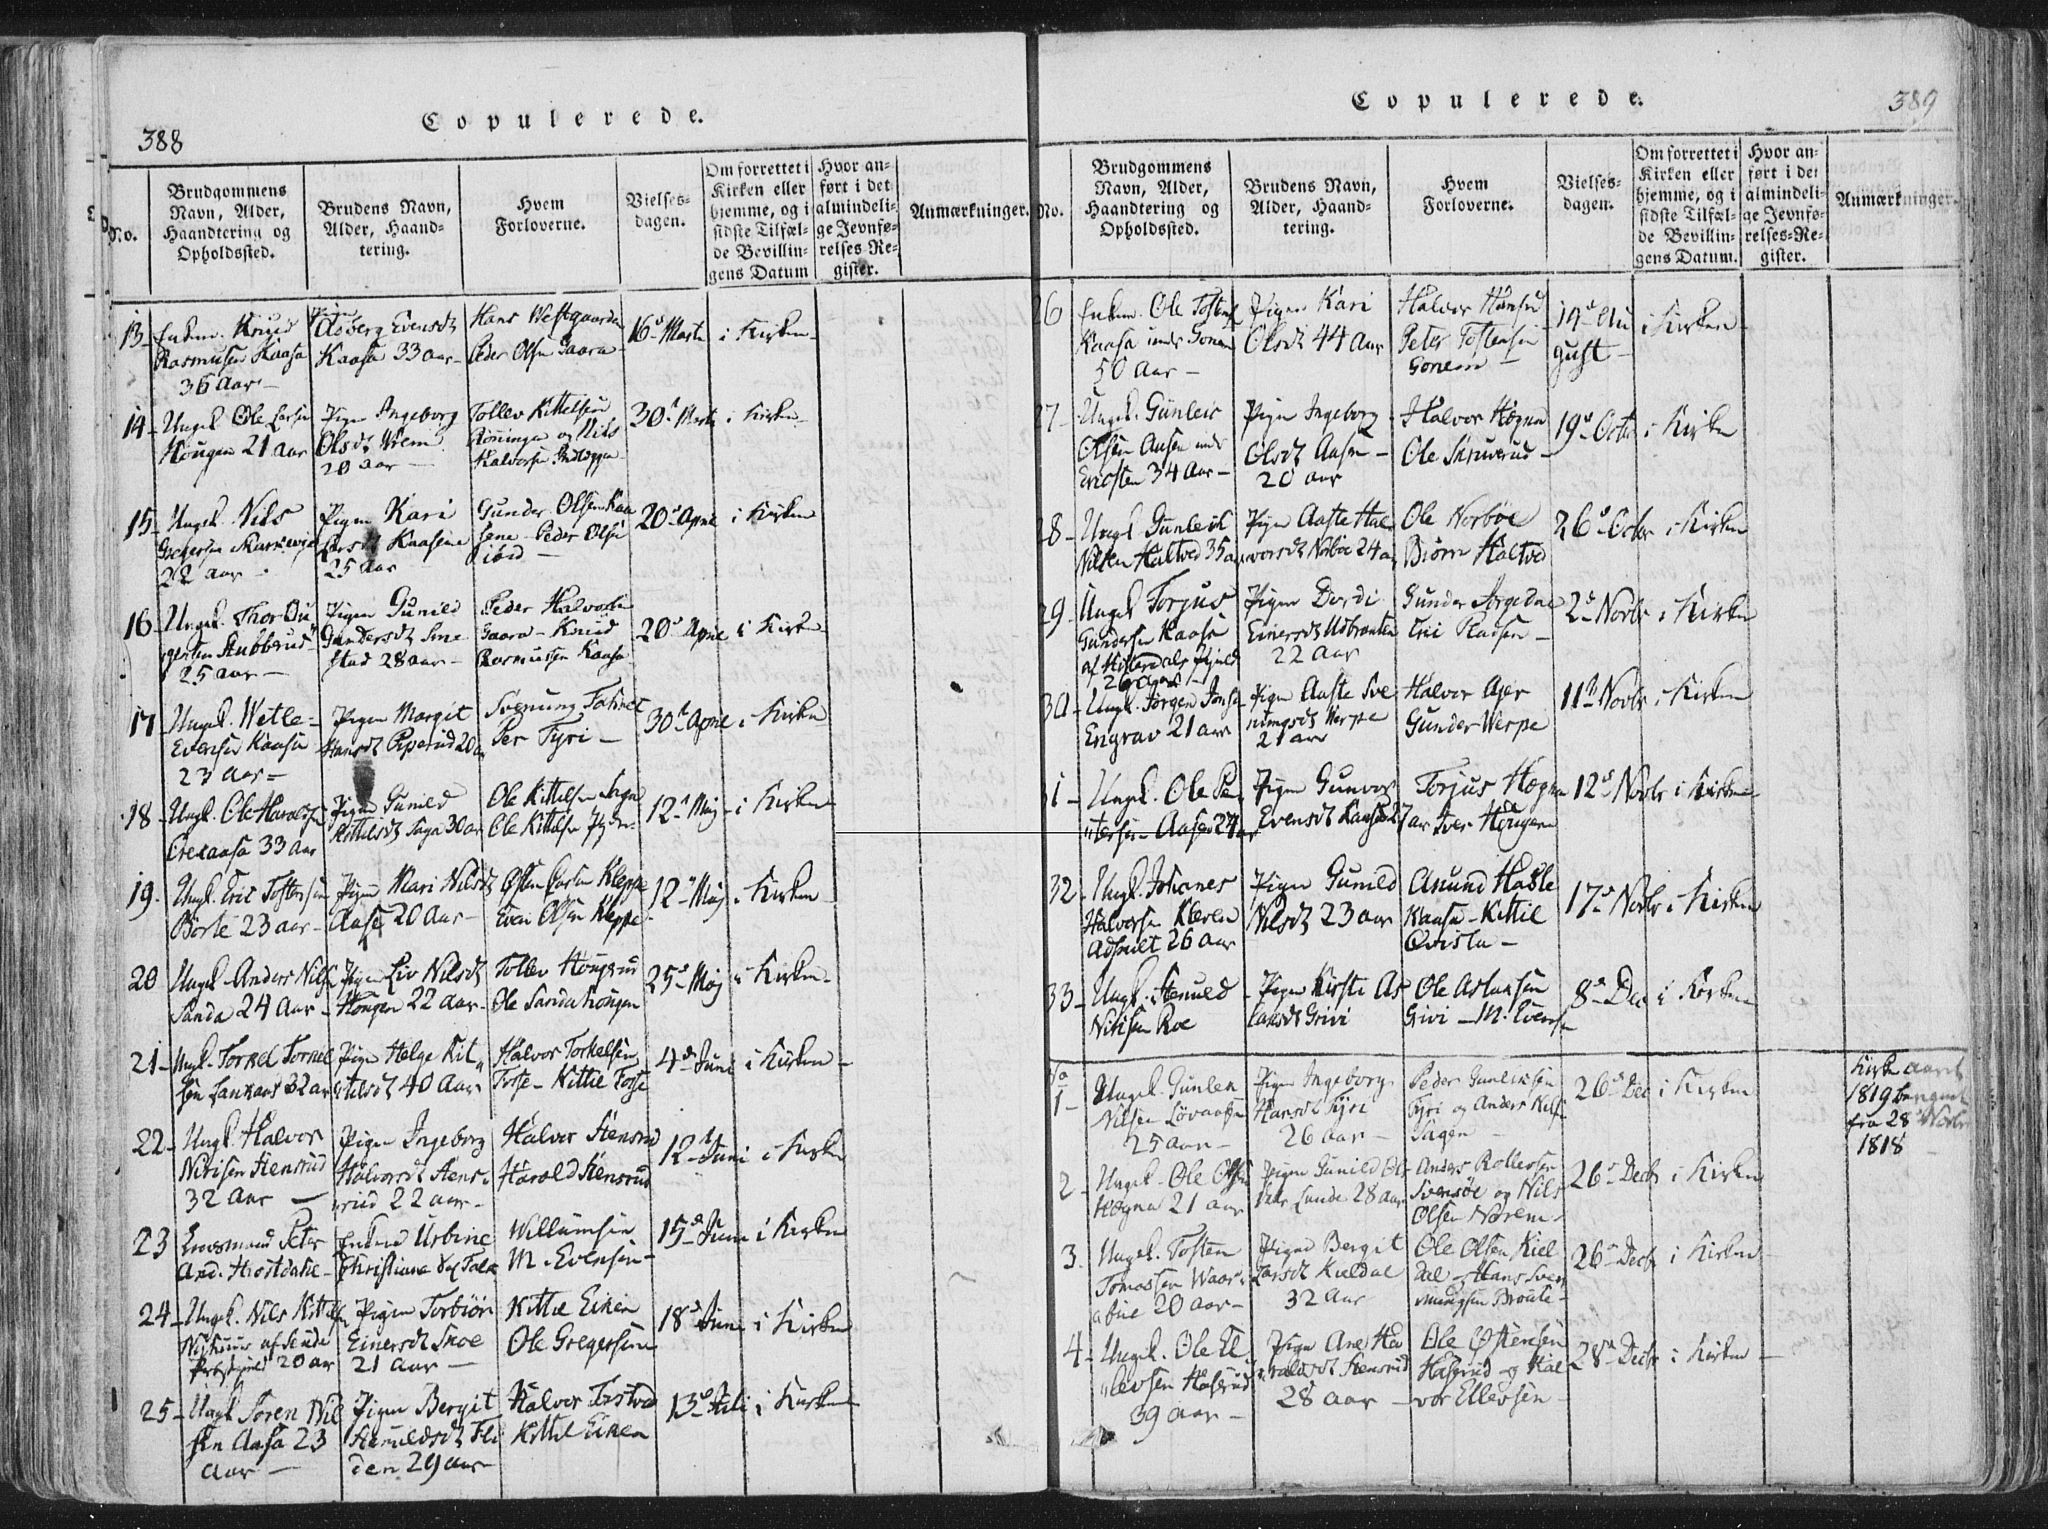 388
Copulerede.
No.
Brudgommens
Navn, Alder,
Haandtering og
Opholdssted.
Brudens Navn,
Alder, Haand-
tering.
Hvem
Forloverne.
Vielses-
dagen.
Om forrettet i
Kirken eller
hjemme, og i
sidste Tilfæl-
de Bevillin-
gens Datum
Hvor an-
ført i det
almindeli-
ge Jevnfø-
relses-Re-
gister.
Anmærkninger.
13- Enkem. Knud
Rasmusen Kaasa
36 Aar-
Pigen
Aaberg Evensdt
Kaasa 33 aar-
Hans Westgaarden
Peder Olsen Gaara-
16d Marti
i Kirken-
14- Ungk. Ole Larsen
Hougen 21 Aar
Pigen Ingeborg
Olsdt Wrem
20 aar-
Tollev Kittelsen
Røninge og Nils
Halvorsen
30d Marti
i Kirken-
15- Ungk. Nils
22 aar-
Pigen Kari
Larsdt Kaasene
25 Aar
Gunder Olsen Kaa
sene- Peder Olsen
20d April
i Kirken
16- Ungk. Thor
Stubberud
25 aar-
Pigen Gunild
Gundersdt Sme
stad 28 aar-
Peder Halvorsen
Gaara- Knud
Rasmussen Kaasa
20d April
i Kirken
17 Ungk. Wetle-
Evensen Kaasa
23 Aar-
Pigen Margit
Hansdt Piperud 20 a
Svenung
Per Tyri-
30d April
i Kirken
18- Ungk. Ole Haraldsen
33 Aar
Pigen Gunild
Kittilsdt Saga 30 aar
Ole Kittelsen Saga
Ole Kittelsen
12d Maj
i Kirken
19. Ungk. Eric Tostensen
Børte 23 aar-
Pigen Mari Nilsdt
Aase 20 Aar-
Østen Larsen Kleppe
Even Olsen Kleppe
12d Maj
i Kirken-
20 Ungk. Anders Nilsen
Sanda 24 Aar-
Pigen Liv Nilsdt
Hougen 22 aar-
Tollev Hougerud
Ole Sandahougen
25d Maj
i Kirken-
21- Ungk. Torkel Torkel
sen 32 aar
Pigen Helge Kit
tilsdt 40 Aar
Halvor Torkelsen
Fosse- Kittil Fosse
4d Juni
i Kirken-
22- Ungk. Halvor
Nirisen Stensrud
32 Aar-
Pigen Ingeborg
Halvorsdt Stens
rud 22 aar-
Halvor Stensrud
Harald Stensrud
12d Juni
i Kirken
23 Peter
And.
Enken Urbine
Christiane
Willumsen
M. Evensen-
15d Juni
i Kirken
24- Ungk. Nils Kittilsen
af Sende
20 aar
Pigen Torbiør
Einersdt Skoe
21 aar-
Kittil Eiken
Ole Gregersen
18d Juni
i Kirken
25- Ungk Søren Nil
sen Aasa 23
aar-
Pigen Bergit
Stenuldsdt Fli
den 29 aar-
Halvor
Kittil Eiken
13d Juli
i Kirken
389
Copulerede.
No.
Brudgommens
Navn, Alder,
Haandtering og
Opholdssted.
Brudens Navn,
Alder, Haand-
tering.
Hvem
Forloverne.
Vielses-
dagen.
Om forrettet i
Kirken eller
hjemme, og i
sidste Tilfæl-
de Bevillin-
gens Datum.
Hvor an-
ført i det
almindeli-
ge Jevnfø-
relses-Re-
gister.
Anmærkninger.
26 Enkem. Ole Tostensen
Kaasa under Gonem
50 Aar-
Pigen Kari
Olsdt 44 Aar
Halvor Hansrud
Peter Tostensen
Gonem-
19d Au
gust-
i Kirken-
27- Ungk. Gunleic
Olsen Aasen under
34 Aar-
Pigen Ingeborg
Olsdt Aasen-
20 aar
Halvor Høgna
Ole Skruverud-
19d Octbr
i Kirken
28- Ungk Gunleik
Nilsen Haltved 35 aar
Pigen Aaste Hal
vorsdt Norbøe 24 aar
Ole Norbøe
Biørn Haltved
26d Octbr
i Kirken
29. Ungk Torjus
Gundersen Kaasa
af Hitterdals
26 Aar
Pigen Dordi
Einersdt Usbranten
22 Aar
Gunder
Eric Pladsen-
2d Novbr
i Kirken
30- Ungk. Jørgen Jonsen
Engrav 21 aar
Pigen Aaste Sve
nungsdt Werpe
21 aar
Halvor Ajer
Gunder Werpe
11d Novbr
i Kirken
31- Ungk. Ole Pe
tersen Aasen 24 aar
Pigen Gunvor
Evensdt Kaasa 27 aar
Torjus Høgna
Iver Hougen
12d Novbr
i Kirken
32- Ungk. Johanes
Halvorsen Kleven
26 Aar
Pigen Gunild
Nilsdt 23 aar
Anund Hasle
Kaasa- Kittil
Qvisla-
17d Novbr
i Kirken
33- Ungk. Stenuld
Nirisen Roe
Pigen Kirsti As
lansdt Grivi
Ole Aslansen
Grivi- M. Evensen
8d Dec
i Kirken
No
1- Ungk. Gunlek
Nilsen Løvaasen
25 aar-
Pigen Ingeborg
Hansdt Tyri
26 aar-
Peder Gunliksen
Tyri og Anders Nilsen
Sagen-
26d Dec
i Kirken
Kirke aaret
1819 begyndt
fra 28 Novbr
1818
2- Ungk. Ole Olsen
Høgna 21 aar
Pigen Gunild Ols
datr Lunde 28 aar
Anders Rollevsen
Svensøe og Nils
Olsen Norem-
26d Decbr
i Kirken
3. Ungk. Tosten
Tomassen
20 aar-
Pigen Bergit
Larsdt Kieldal
32 Aar
Ole Olsen Kiel
dal- Hans Sven
ningsen Broute-
26d Decbr
i Kirken-
4- Ungk. Ole El
levsen Haserud
39 aar-
Pigen Ane Ha
raldsdt Stensrud
28 aar-
Ole Østensen
Haserud og Hal
vor Ellevsen-
28d Decbr
i Kirken-